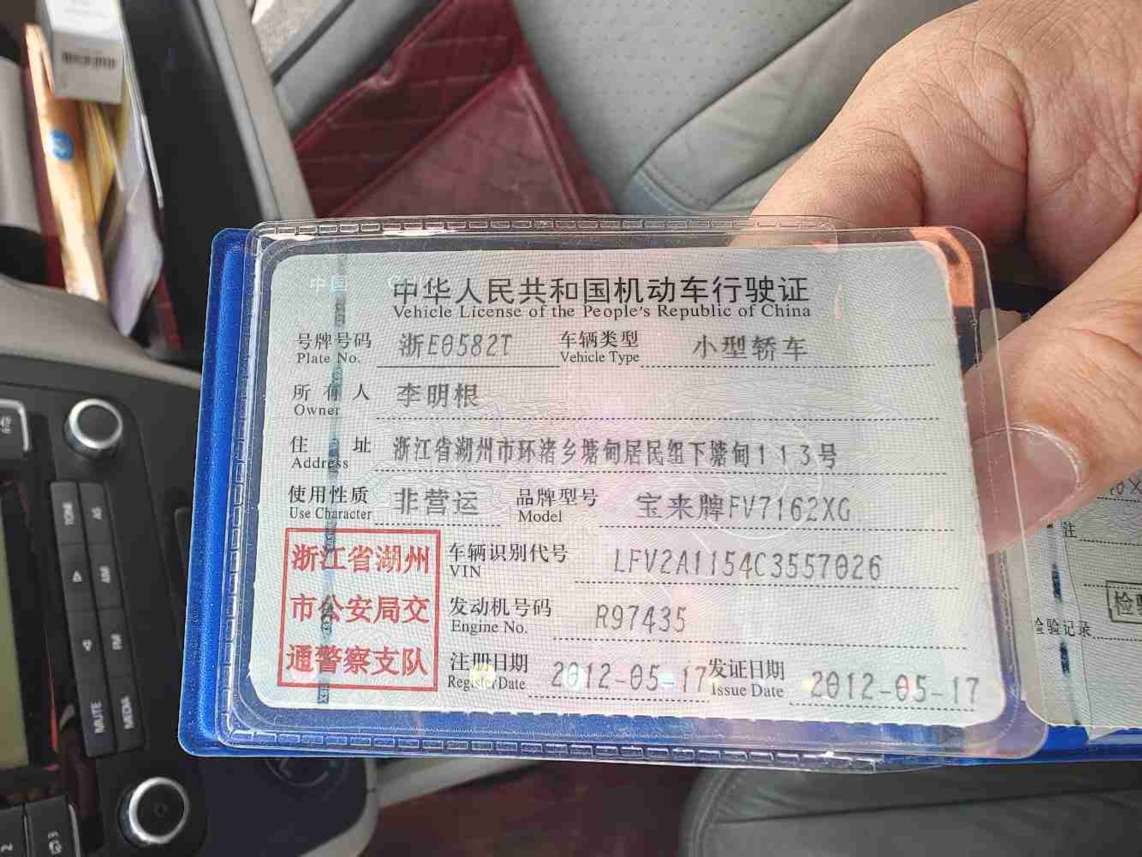 中国
中华人民共和国机动车行驶证
Vehicle License of the People's Republic of China
号牌号码 浙E0582T 车辆类型 小型轿车
Plate No. Vehicle Type
所有人 李明根
Owner
住址 浙江省湖州市环渚乡塘甸居民组下塘甸113号
Address
使用性质 非营运 品牌型号 宝来牌FV7162XG
Use Character Model
浙江省湖州
市公安局交
通警察支队
车辆识别代号 LFV2A1154C3557026
VIN
发动机号码 R97435
Engine No.
注册日期 2012-05-17 发证日期 2012-05-17
Register Date Issue Date
注
检验记录
MUTE
MEDIA
AM
FM